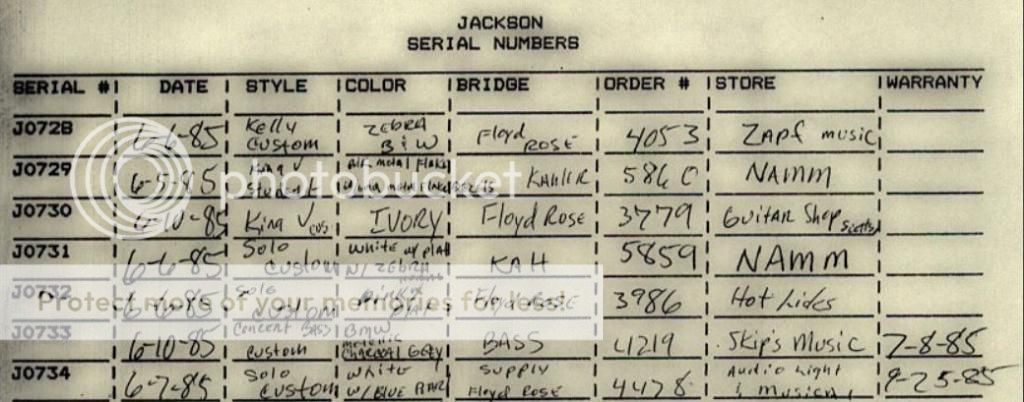 JACKSON
SERIAL NUMBERS
SERIAL # DATE STYLE COLOR BRIDGE ORDER # STORE WARRANTY
J0728 6-6-85 Kelly Custom ZEBRA B/W Floyd Rose 4053 Zapf music
J0729 6-5-85 King V Student metal Flake KAHLER 5860 NAMM
J0730 6-10-85 King V IVORY Floyd Rose 3779 Guitar Shop
J0731 6-6-85 Solo Custom White w/ W/ ZEBRA KAH 5859 NAMM
photobucket
Protect more of your memories for less!
J0732 6-6-85 Solo Custom Floyd Rose 3986 Hot Licks
J0733 6-10-85 Concert Bass Custom BMW metallic Charcoal Grey BASS 4219 Skip's Music 7-8-85
J0734 6-7-85 Solo Custom White w/ BLUE Supply Floyd Rose 4478 Audio Light & Musical 9-25-85